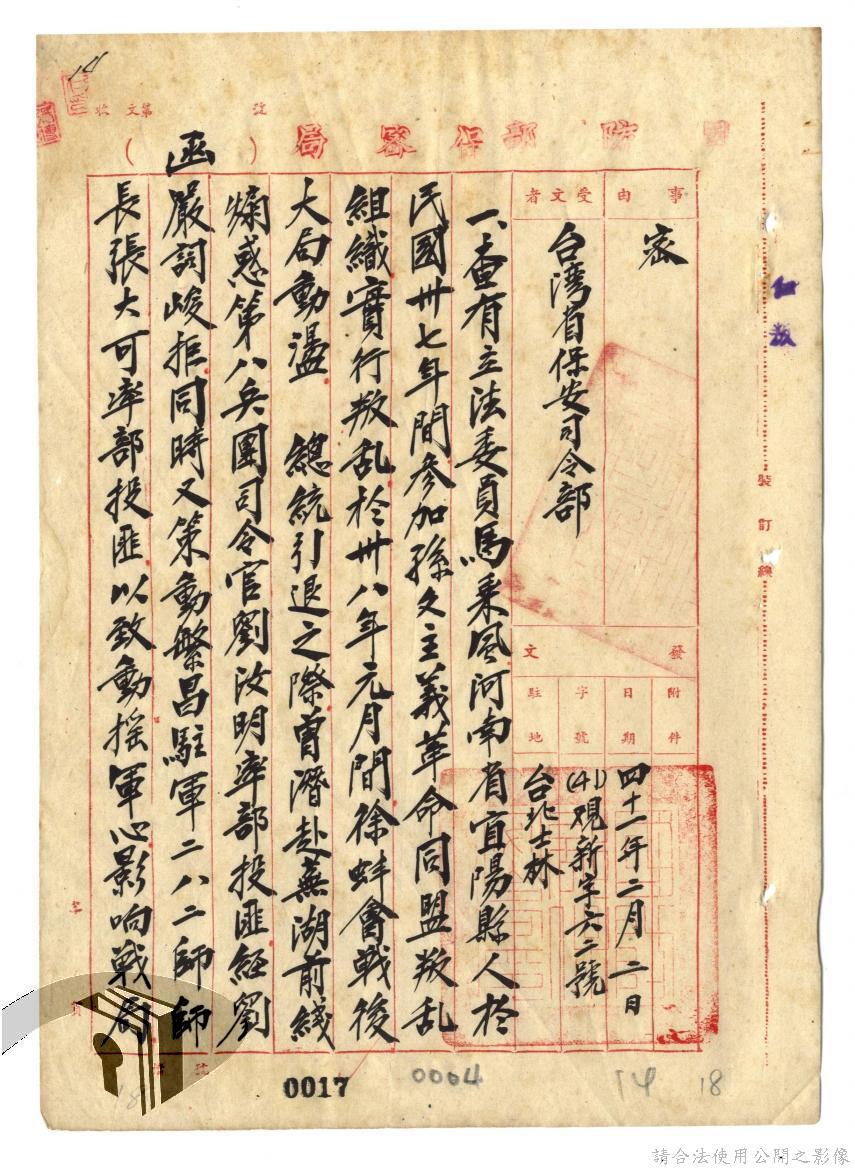 國防部保密局
(函)
收文第 號
事由
密
受文者
台湾省保安司令部
發文
附件
日期
四十一年二月二日
字號
(41)硯新字六二號
駐地
台北士林
一、查有立法委員馬乘风河南省宜陽縣人於
民國卅七年間参加孫文主義革命同盟叛乱
組織實行叛乱於卅八年元月間徐蚌會戰後
大局動盪 總統引退之際曾潛赴蕪湖前綫
煽惑第八兵團司令官劉汝明率部投匪經劉
嚴詞峻拒同時又策動繁昌駐軍二八二師師
長張大可率部投匪以致動摇軍心影响戰局
裝訂線
0017
0004
14
18
請合法使用公開之影像